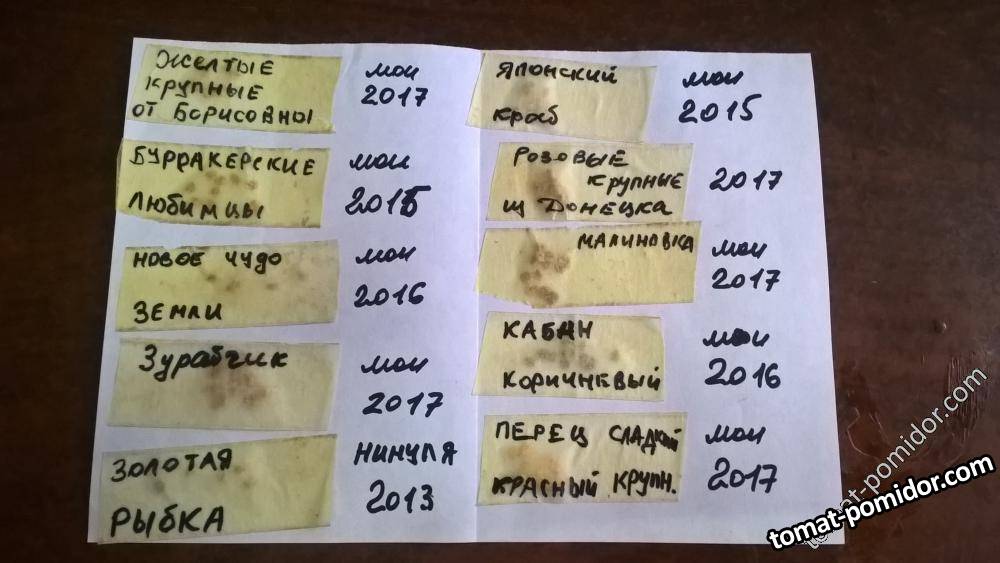 Желтые
крупные
от Борисовны
мои
2017
Бурракерские
любимцы
мои
2015
новое чудо
земли
мои
2016
Зурабчик
мои
2017
Золотая
рыбка
Нинуля
2013
Японский
краб
мои
2015
розовые
крупные
из Донецка
2017
малиновка
мои
2017
Кабан
коричневый
мои
2016
Перец сладкий
красный крупн.
мои
2017
tomat-pomidor.com
tomat-pomidor.com